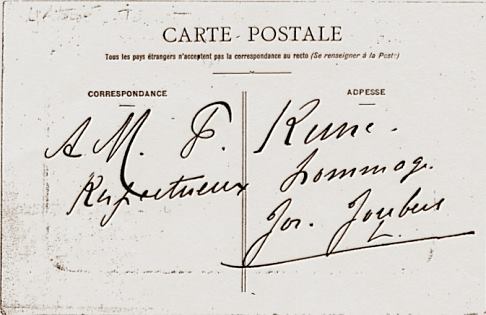 CARTE POSTALE
Tous les pays étrangers n'acceptent pas la correspondance au recto (Se renseigner à la Poste)
CORRESPONDANCE
ADRESSE
A M. F.
Respectueux
hommage
Jos.